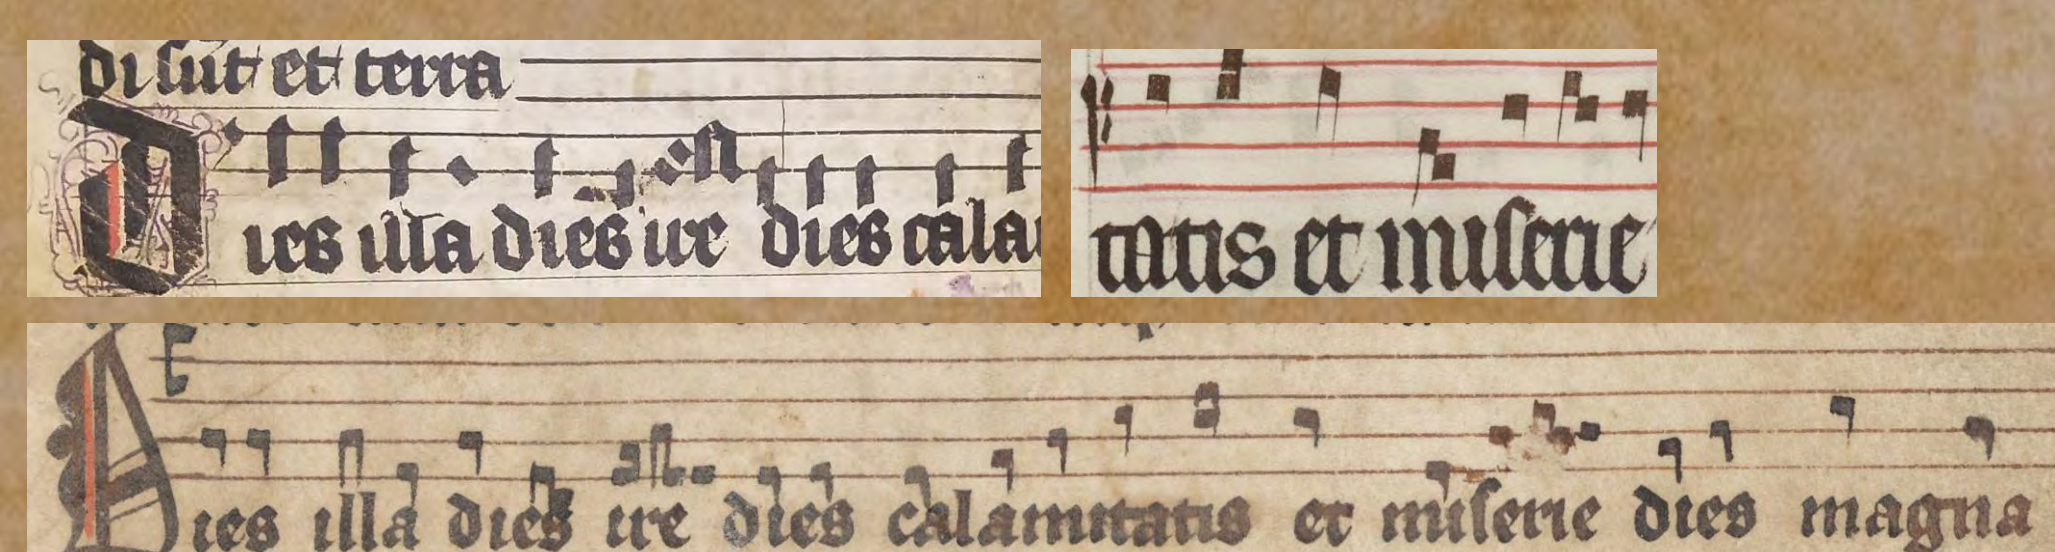 di sūt et terra
Dies illa dies ire dies cala
tatis et miserie
Dies illa dies ire dies calamitatis et miserie dies magna